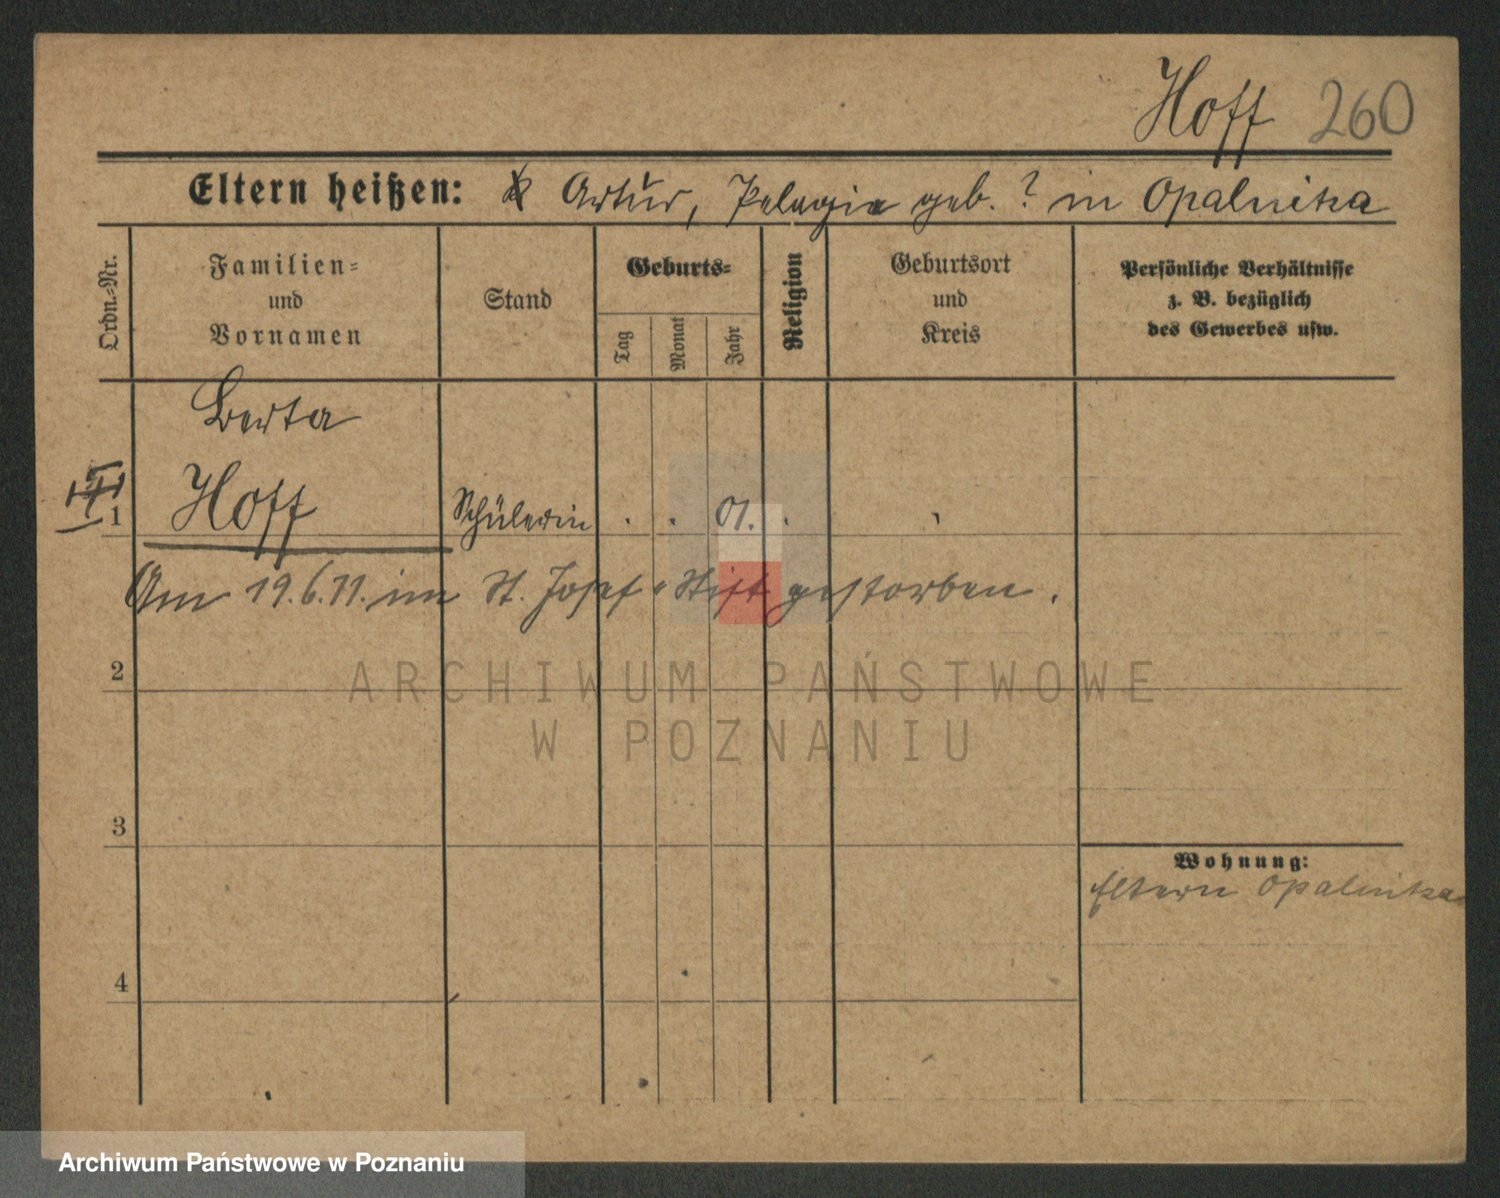 Hoff 260
Eltern heißen: Artur, Pelagie geb. ? in Opalnitza
Ordn.-Nr.
Familien-
und
Vornamen
Stand
Geburts-
Tag
Monat
Jahr
Religion
Geburtsort
und
Kreis
Persönliche Verhältnisse
z. B. bezüglich
des Gewerbes usw.
Berta
1 Hoff Schülerin . . 01. .
Am 19.6.11. im St. Josef-Stift gestorben.
2
ARCHIWUM PAŃSTWOWE
W POZNANIU
3
Wohnung:
Eltern Opalnitza
4
Archiwum Państwowe w Poznaniu